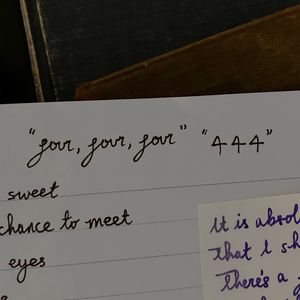 "four, four, four" "444"
sweet
chance to meet
eyes
It is absol
that I sh
There's a